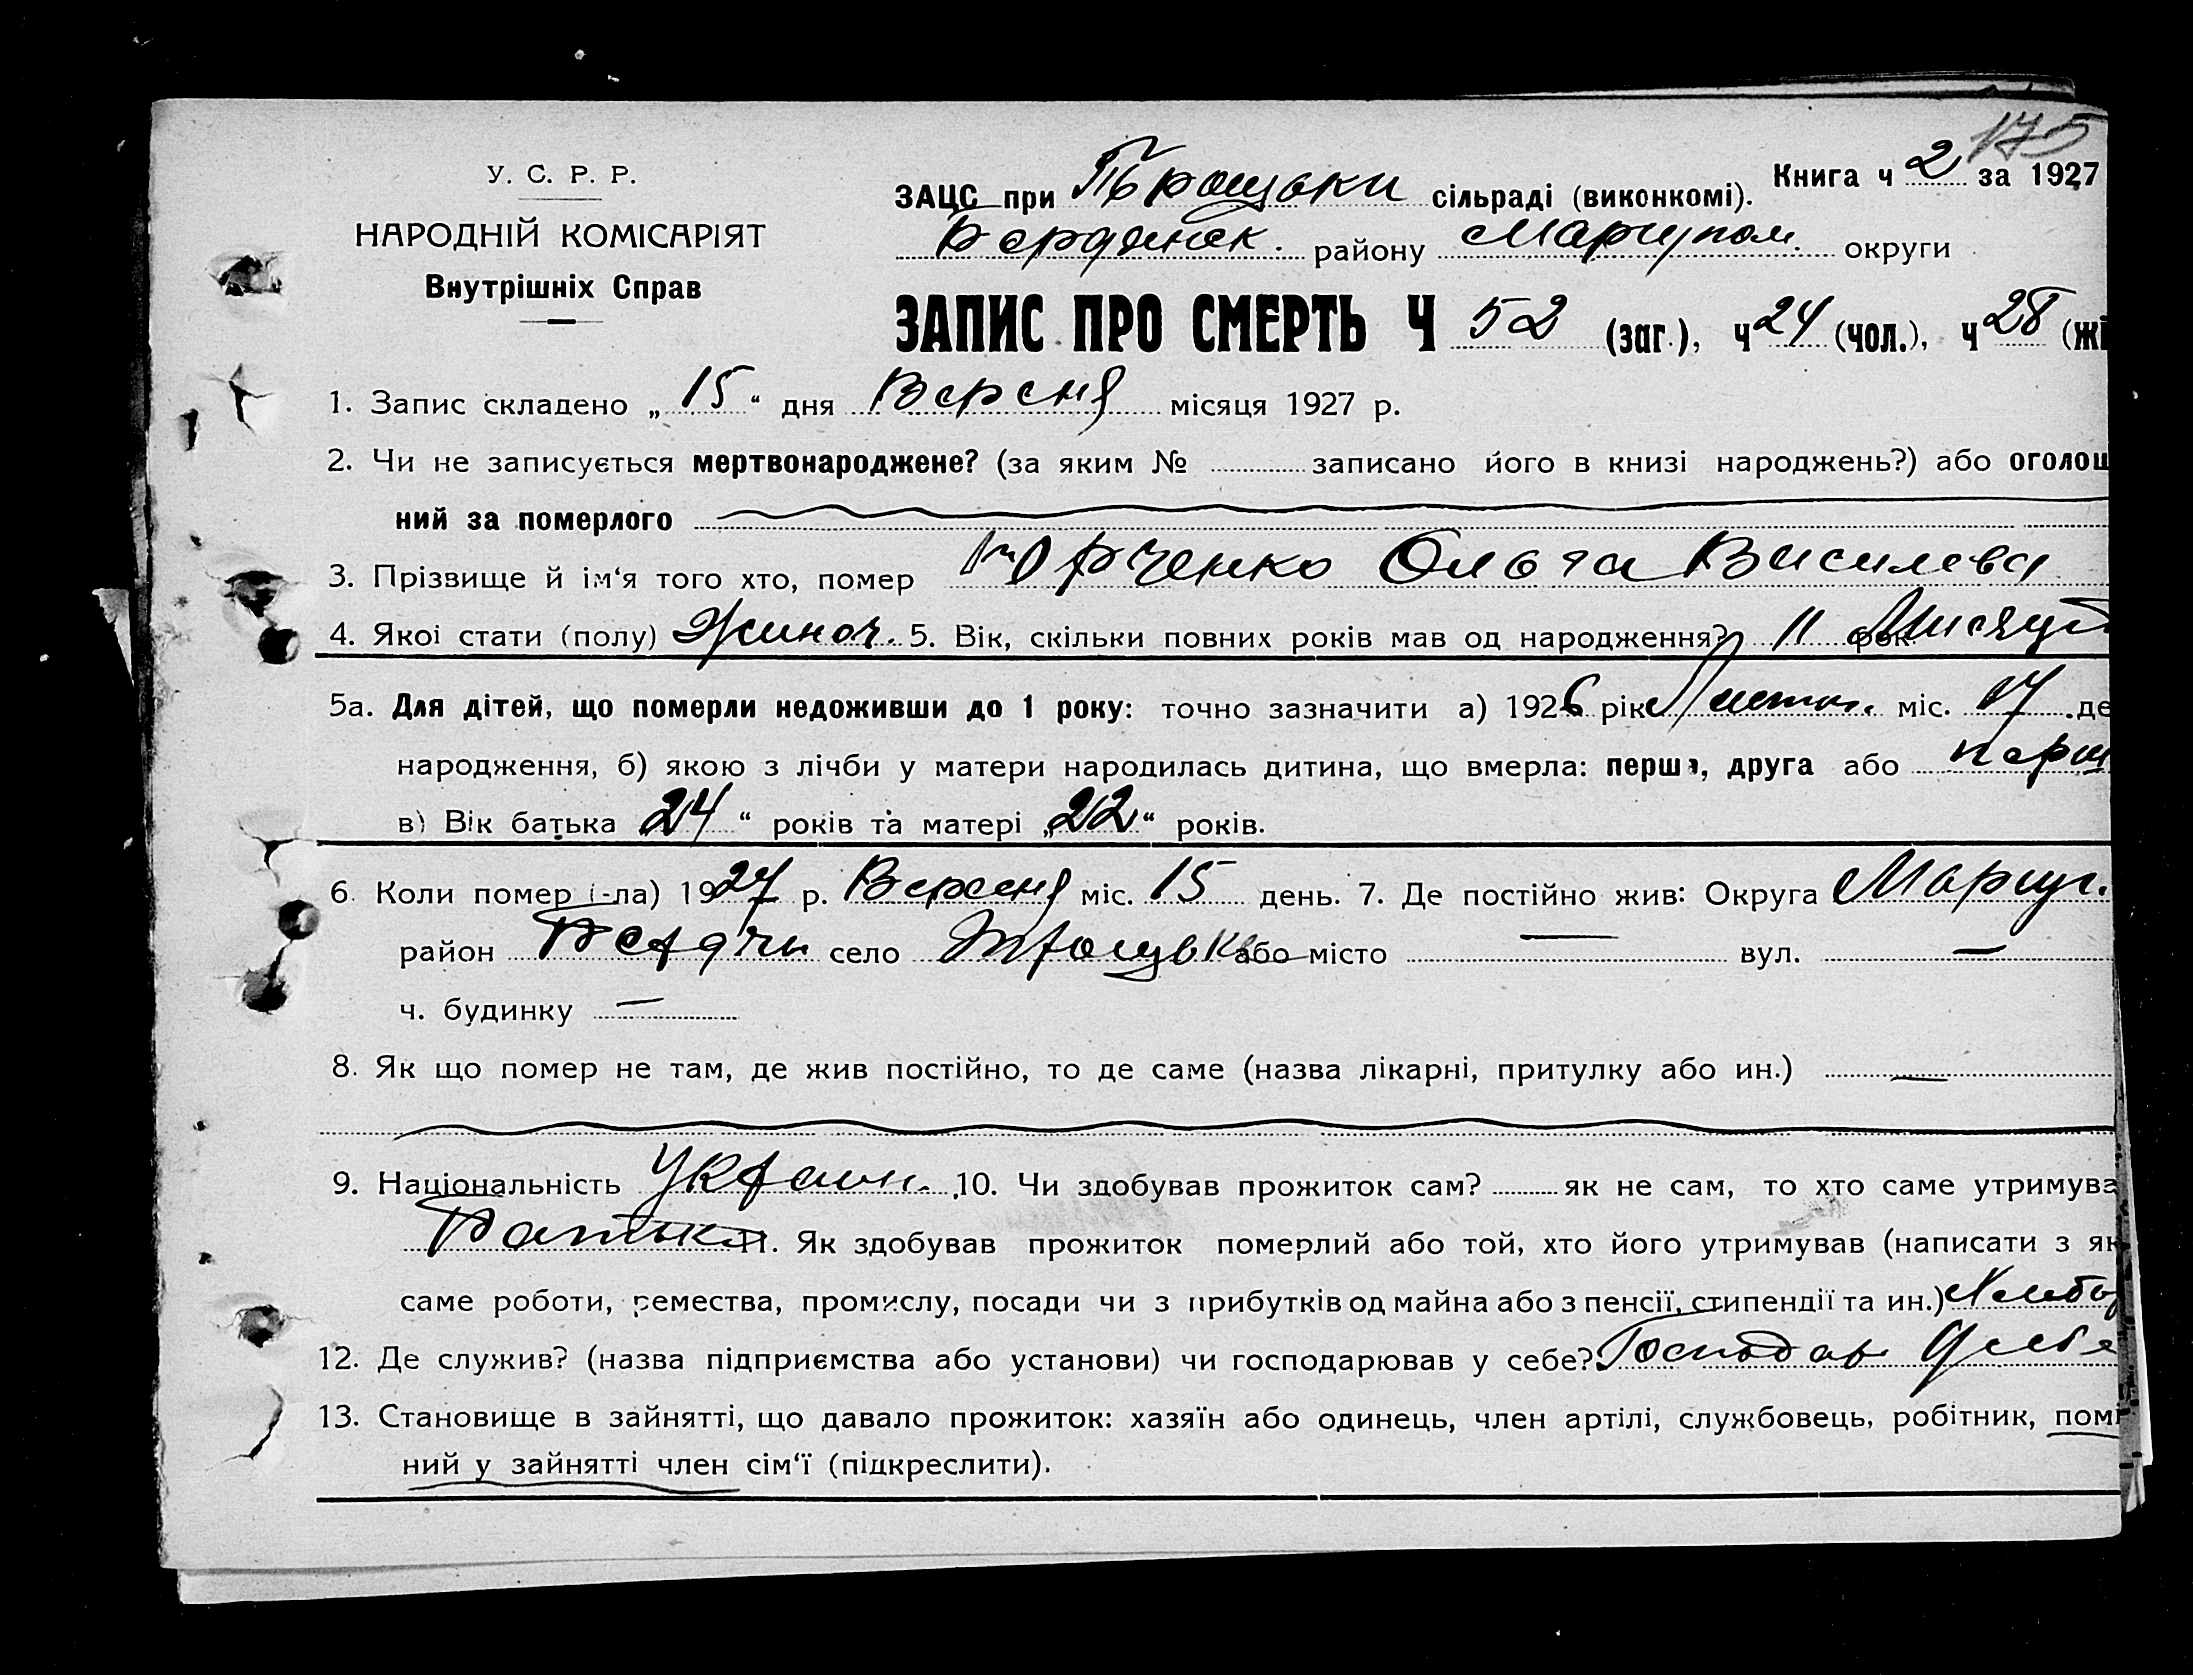 175
У. С. Р. Р.
НАРОДНІЙ КОМІСАРІЯТ
Внутрішніх Справ
Книга ч 2 за 1927
ЗАЦС при сільраді (виконкомі).
Бердянск. району Мариупол. округи
ЗАПИС ПРО СМЕРТЬ Ч 52 (заг.), ч 24 (чол.), ч 28 (жі
1. Запис складено „ 15 “ дня Версня місяця 1927 р.
2. Чи не записується мертвонароджене? (за яким № записано його в книзі народжень?) або оголош
ний за померлого
3. Прізвище й ім‘я того хто, помер Юрченко Ольга Василева
4. Якоі стати (полу) Жиноч. 5. Вік, скільки повних років мав од народження? 11 рок Мисяців
5а. Для дітей, що померли недоживши до 1 року: точно зазначити а) 1926 рік Листоп. міс. 17 де
народження, б) якою з лічби у матери народилась дитина, що вмерла: перша, друга або перш
в) Вік батька 24 “ років та матері „ 22 “ років.
6. Коли помер (-ла) 1927 р. Версеня міс. 15 день. 7. Де постійно жив: Округа Мариуп.
район Бердян село або місто — вул. —
ч. будинку —
8. Як що помер не там, де жив постійно, то де саме (назва лікарні, притулку або ин.) —
9. Національність Украин. 10. Чи здобував прожиток сам? як не сам, то хто саме утримува
Батько 11. Як здобував прожиток померлий або той, хто його утримував (написати з як
саме роботи, ремества, промислу, посади чи з прибутків од майна або з пенсії, стипендії та ин.) Хлибо
12. Де служив? (назва підприємства або установи) чи господарював у себе? Господар у себе
13. Становище в зайнятті, що давало прожиток: хазяїн або одинець, член артілі, службовець, робітник, помі
ний у зайнятті член сім‘ї (підкреслити).